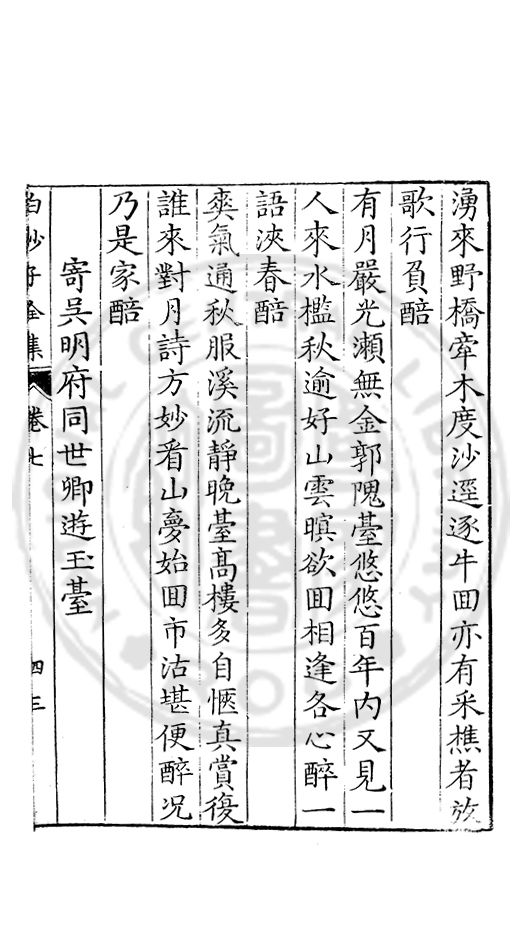 湧來野橋牽木度沙逕逐牛囬亦有采樵者放
歌行負醅
有月嚴光瀨無金郭隗臺悠悠百年内又見一
人來水檻秋逾好山雲暝欲囬相逢各心醉一
語浹春醅
爽氣通秋服溪流靜晚臺髙樓多自愜真賞復
誰來對月詩方妙看山夣始囬市沽堪便醉况
乃是家醅
寄吳明府同世卿遊玉臺
白沙子全集 卷七 四三